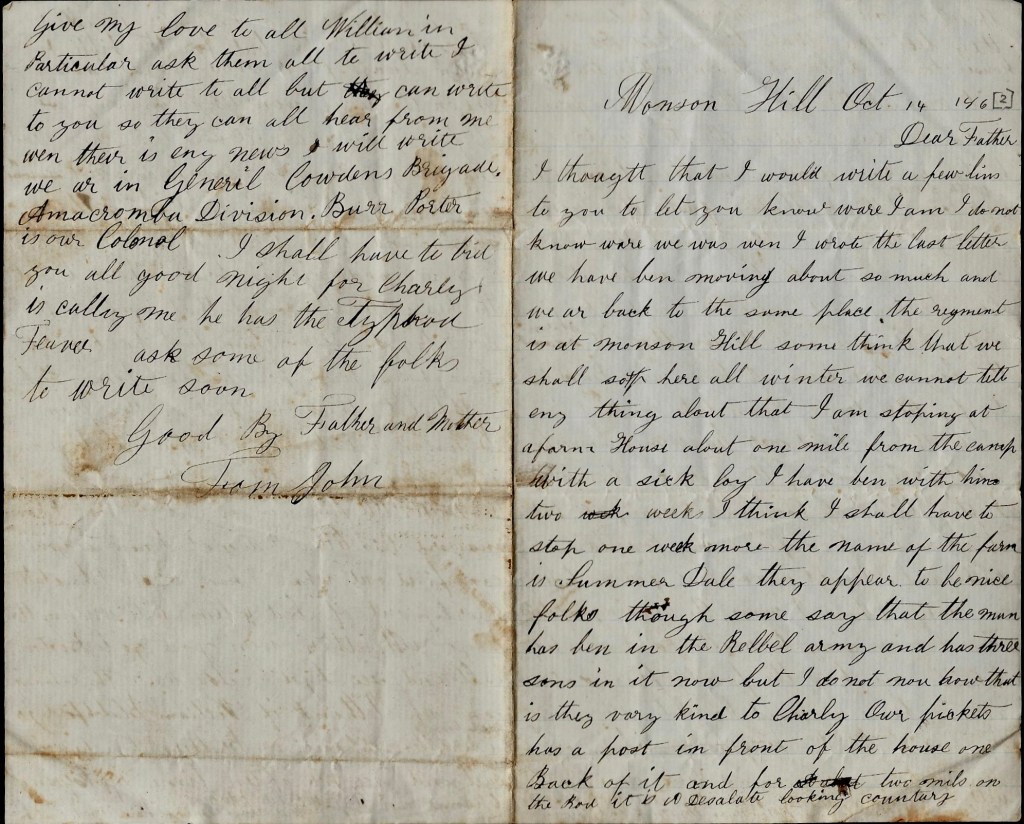 Monson Hill Oct. 14 186[2]
Dear Father
I thought that I would write a few lins
to you to let you know ware I am I do not
know ware we was wen I wrote the last letter
we have ben moving about so much and
we ar back to the same place. the regment
is at Monson Hill some think that we
shall stop here all winter we cannot tell
eny thing about that I am stoping at
a farm House about one mile from the camp
with a sick boy I have ben with him
two weeks I think I shall have to
stop one week more the name of the farm
is Summer Dale they appear to be nice
folks though some say that the man
has ben in the Relbel army and has three
sons in it now but I do not nou how that
is they vary kind to Charly Owr pickets
has a post in front of the house one
Back of it and for two mils on
the Rod it is a Desalate looking countary
Give my love to all William in
Particular ask them all to write I
cannot write to all but they can write
to you so they can all hear from me
wen their is eny news I will write
we ar in Generil Cowdens Brigade.
Amacromba Division. Burr Porter
is owr Colonol. I shall have to bid
you all good night for Charley
is calling me he has the
Feaver ask some of the folks
to write soon
Good By Father and Mother
From John